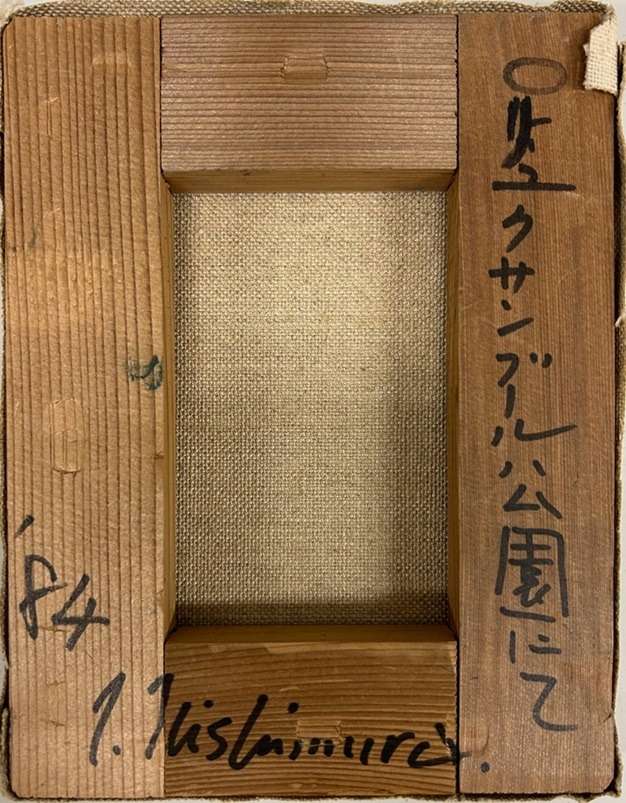 ○リュクサンブール公園にて
'84
I. Nishimura.